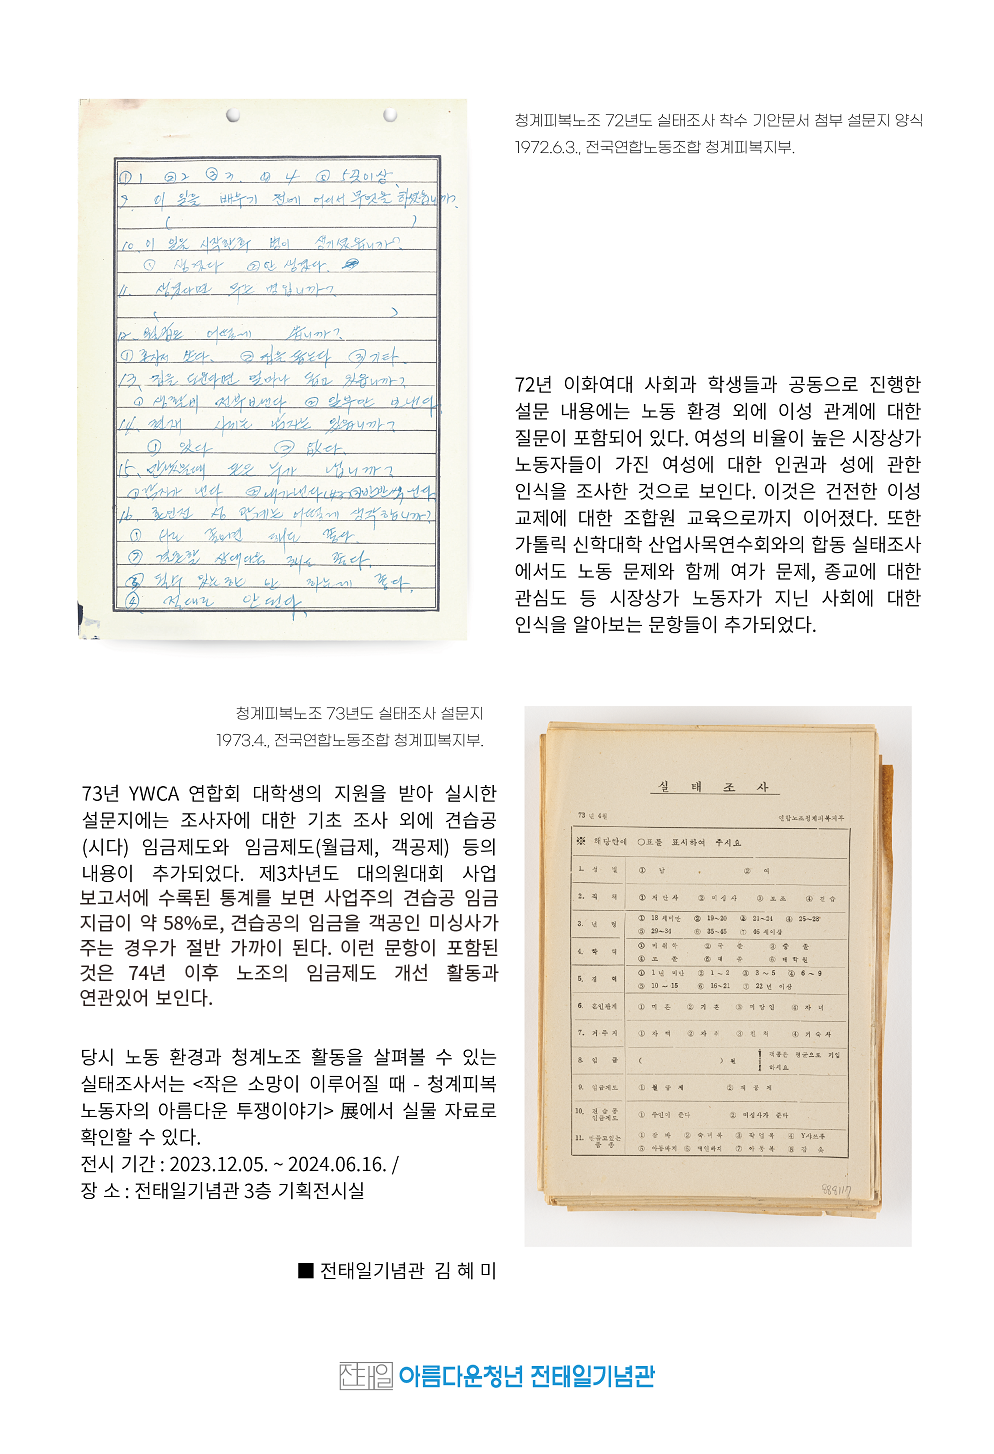 청계피복노조 72년도 실태조사 착수 기안문서 첨부 설문지 양식
1972.6.3., 전국연합노동조합 청계피복지부.
① 1 ② 2 ③ 3. ④ 4 ⑤ 5곳이상.
9. 이 일을 배우기 전에 어디서 무엇을 하셨습니까?
( )
10. 이 일을 시작한후 병이 생기셨습니까?
① 생겼다 ② 안 생겼다.
11. 생겼다면 무슨 병입니까?
( )
12. 월급은 어떻게 씁니까?
① 혼자서 쓴다. ② 집을 돕는다 ③ 기타.
13. 집을 도운다면 얼마나 돕고 있읍니까?
① 생활비 전부보낸다 ② 일부만 보낸다
14. 현재 사귀는 남자는 있읍니까?
① 있다 ② 없다.
15. 만났을때 돈은 누가 냅니까?
① 남자가 낸다 ② 내가낸다
16. 혼인전 성 관계는 어떻게 생각하십니까?
① 서로 좋으면 해도 좋다.
② 결혼할 상대라면 해도 좋다.
④ 절대로 안된다.
72년 이화여대 사회과 학생들과 공동으로 진행한
설문 내용에는 노동 환경 외에 이성 관계에 대한
질문이 포함되어 있다. 여성의 비율이 높은 시장상가
노동자들이 가진 여성에 대한 인권과 성에 관한
인식을 조사한 것으로 보인다. 이것은 건전한 이성
교제에 대한 조합원 교육으로까지 이어졌다. 또한
가톨릭 신학대학 산업사목연수회와의 합동 실태조사
에서도 노동 문제와 함께 여가 문제, 종교에 대한
관심도 등 시장상가 노동자가 지닌 사회에 대한
인식을 알아보는 문항들이 추가되었다.
청계피복노조 73년도 실태조사 설문지
1973.4., 전국연합노동조합 청계피복지부.
73년 YWCA 연합회 대학생의 지원을 받아 실시한
설문지에는 조사자에 대한 기초 조사 외에 견습공
(시다) 임금제도와 임금제도(월급제, 객공제) 등의
내용이 추가되었다. 제3차년도 대의원대회 사업
보고서에 수록된 통계를 보면 사업주의 견습공 임금
지급이 약 58%로, 견습공의 임금을 객공인 미싱사가
주는 경우가 절반 가까이 된다. 이런 문항이 포함된
것은 74년 이후 노조의 임금제도 개선 활동과
연관있어 보인다.
당시 노동 환경과 청계노조 활동을 살펴볼 수 있는
실태조사서는 <작은 소망이 이루어질 때 - 청계피복
노동자의 아름다운 투쟁이야기> 展에서 실물 자료로
확인할 수 있다.
전시 기간 : 2023.12.05. ~ 2024.06.16. /
장 소 : 전태일기념관 3층 기획전시실
■ 전태일기념관 김 혜 미
실 태 조 사
73년 4월 연합노조청계피복지부
※ 해당란에 ○표를 표시하여 주시요
1. 성 별 ① 남 ② 여
2. 직 책 ① 재단사 ② 미싱사 ③ 보조 ④ 견습
3. 년 령 ① 18세미만 ② 19~20 ③ 21~24 ④ 25~28
⑤ 29~34 ⑥ 35~45 ⑦ 46세이상
4. 학 력 ① 미취학 ② 국졸 ③ 중졸
④ 고졸 ⑤ 대졸 ⑥ 대학원
5. 경 력 ① 1년 미만 ② 1~2 ③ 3~5 ④ 6~9
⑤ 10~15 ⑥ 16~21 ⑦ 22년 이상
6. 혼인관계 ① 미혼 ② 기혼
7. 거주지 ① 자택 ③ 친척 ④ 기숙사
8. 임 금 ( ) 원 객공은 평균으로 기입하시요
9. 임금제도 ① 월급제 ② 객공제
10. 견습공 임금제도 ① 주인이 준다 ② 미싱사가 준다
11. ① 잠바 ② 숙녀복 ③ 작업복 ④ Y샤쓰류
⑦ 아동복
888117
전태일 아름다운청년 전태일기념관